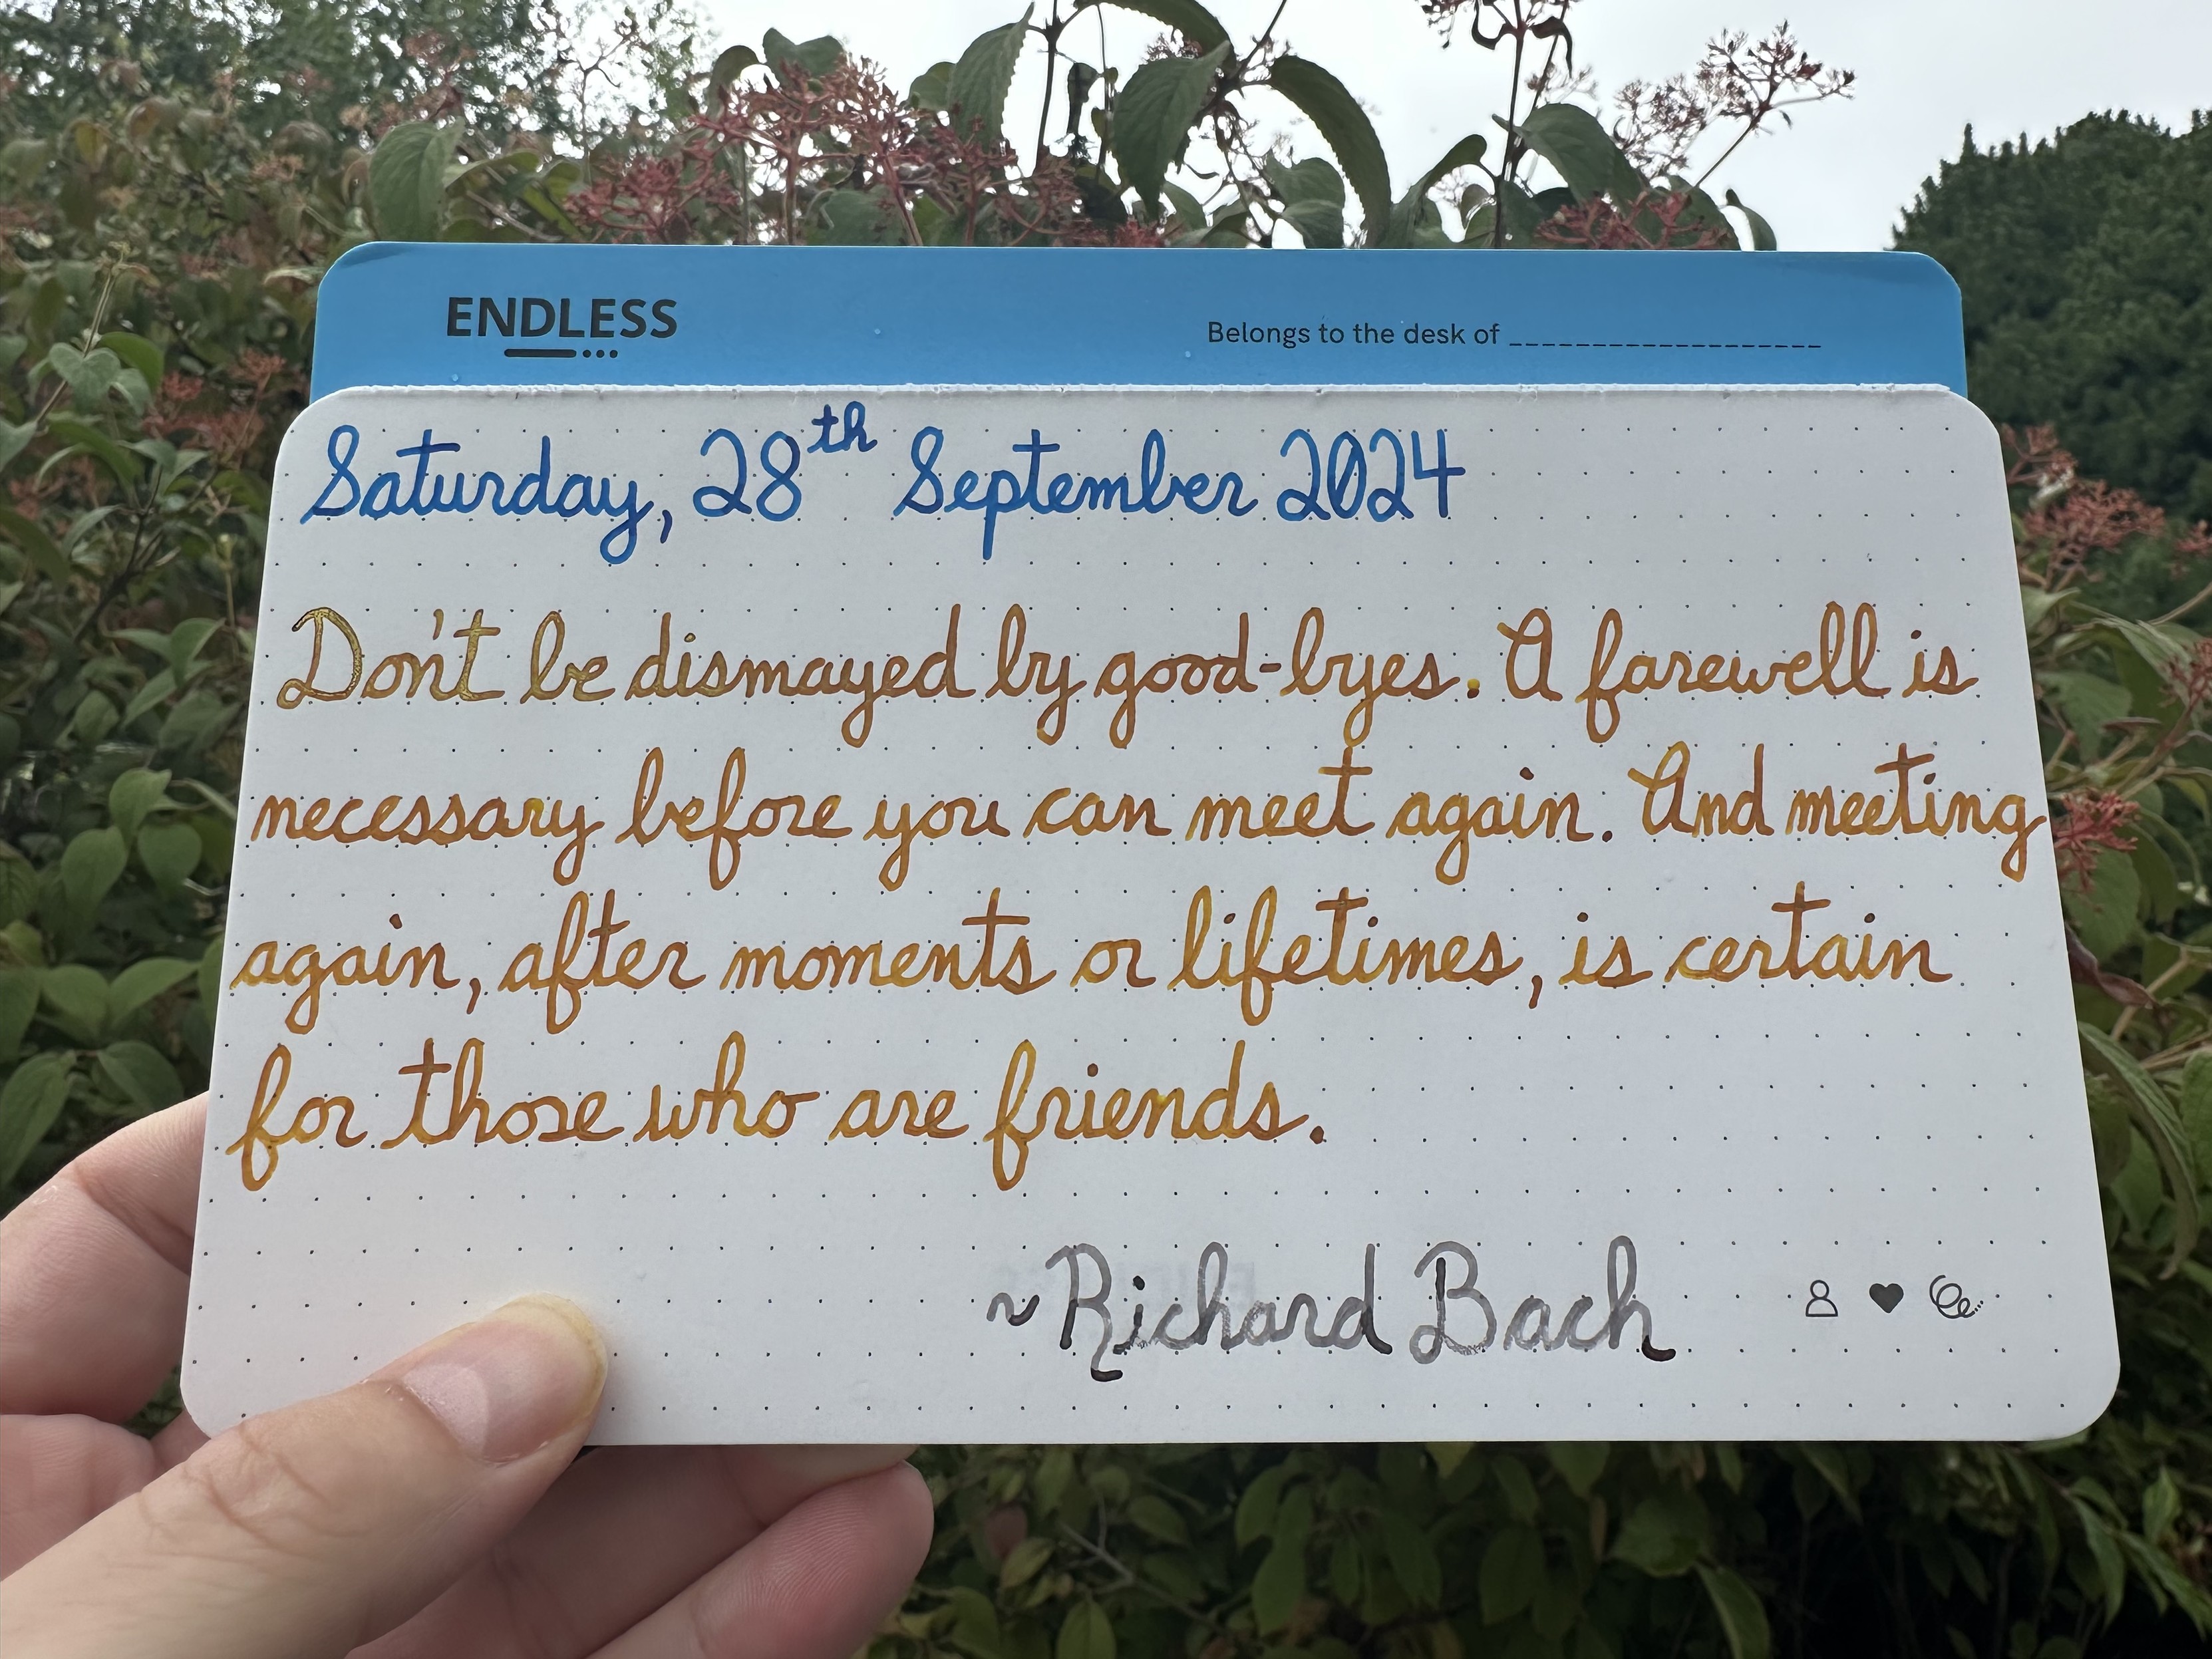 ENDLESS
Belongs to the desk of ___________________
Saturday, 28th September 2024
Don't be dismayed by good-byes. A farewell is
necessary before you can meet again. And meeting
again, after moments or lifetimes, is certain
for those who are friends.
~Richard Bach